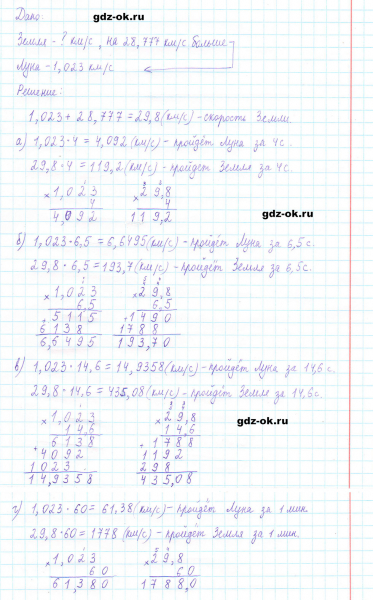 gdz-ok.ru
Дано:
Земля - ? км/с, на 28,777 км/с больше
Луна - 1,023 км/с
Решение:
1,023 + 28,777 = 29,8 (км/с) - скорость Земли
а) 1,023 · 4 = 4,092 (км/с) - пройдёт Луна за 4с.
29,8 · 4 = 119,2 (км/с) - пройдёт Земля за 4с.
× 1,023 × 29,8
4 4
4,092 119,2
gdz-ok.ru
б) 1,023 · 6,5 = 6,6495 (км/с) - пройдёт Луна за 6,5 с.
29,8 · 6,5 = 193,7 (км/с) - пройдёт Земля за 6,5с.
× 1,023 × 29,8
6,5 6,5
+ 5115 + 1490
6138 1788
6,6495 193,70
gdz-ok.ru
в) 1,023 · 14,6 = 14,9358 (км/с) - пройдёт Луна за 14,6 с.
29,8 · 14,6 = 435,08 (км/с) - пройдёт Земля за 14,6с.
× 1,023 × 29,8
14,6 14,6
6138 + 1788
+ 4092 1192
1023 298
14,9358 435,08
gdz-ok.ru
г) 1,023 · 60 = 61,38 (км/с) - пройдёт Луна за 1 мин.
29,8 · 60 = 1778 (км/с) - пройдёт Земля за 1 мин.
× 1,023 × 29,8
60 60
61,380 1788,0
gdz-ok.ru